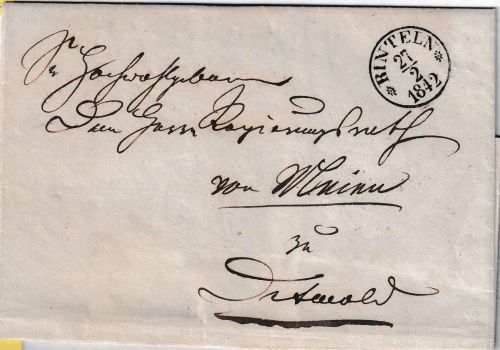 RINTELN
27/2
1842
Sr Hochwohlgeboren
Dem Herrn Regierungsrath
von
zu
Detmold